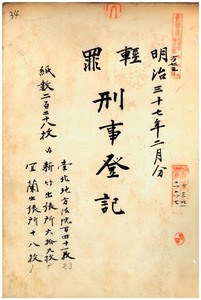 34
明治三十七年二月分
輕罪
刑事登記
紙數二百二十八枚
臺北地方法院百四十一枚
內 新竹出張所六拾九枚
宜蘭出張所十八枚